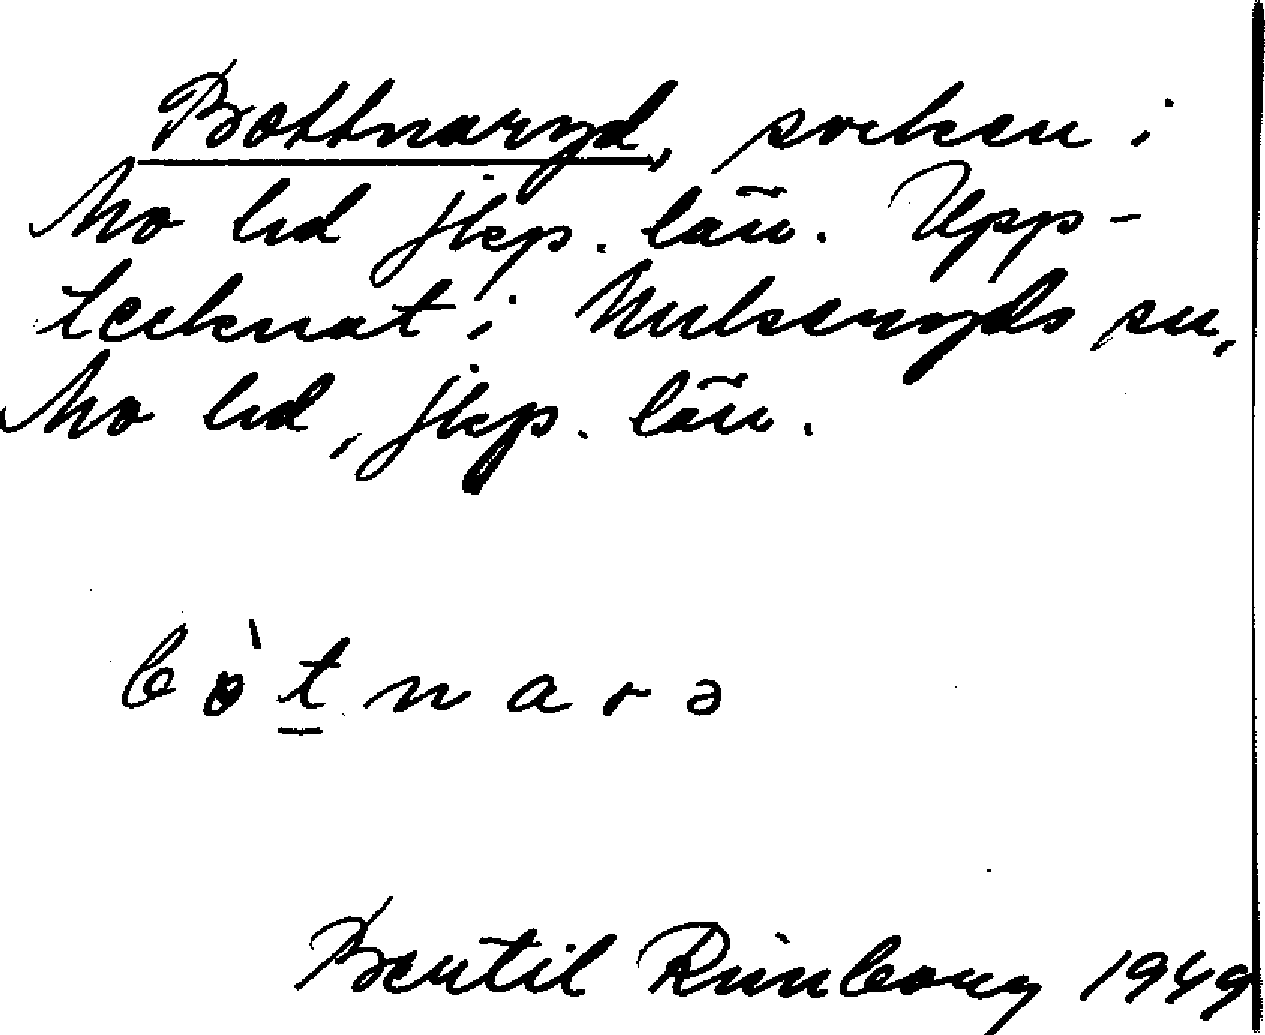 Bottnaryd, socken i
Mo hd jkp. län. Upp-
tecknat i Mulseryds sn,
Mo hd, jkp. län.
bòt̲narə
Bertil Rimborg 1949